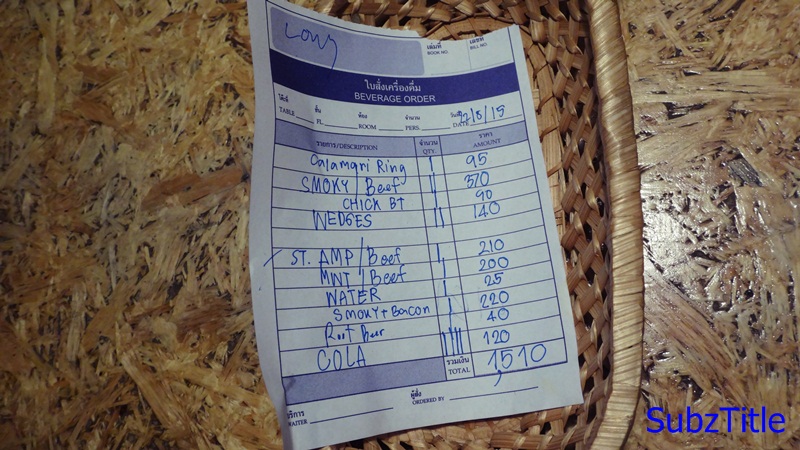 Lony
เล่มที่ เลขที่
BOOK NO. BILL NO.
ใบสั่งเครื่องดื่ม
BEVERAGE ORDER
โต๊ะที่ ชั้น ห้อง จำนวน วันที่
TABLE FL. ROOM PERS. DATE /8/15
รายการ/DESCRIPTION จำนวน QTY. ราคา AMOUNT
Calamari Ring 1 95
SMOKY / Beef 370
CHICK BT 90
WEDGES 140
ST. AMP / Beef 210
MNT / Beef 200
WATER 25
SMOKY + Bacon 220
Root Beer 40
COLA 120
รวมเงิน TOTAL 1510
บริการ ผู้สั่ง
WAITER ORDERED BY
SubzTitle